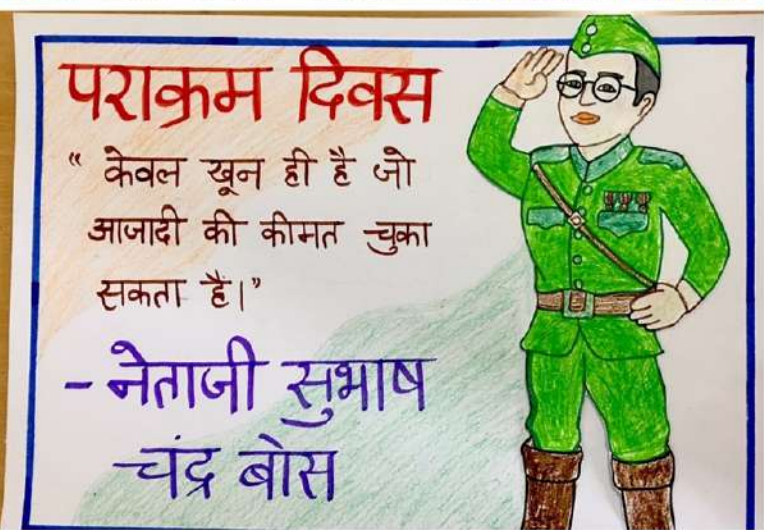 पराक्रम दिवस
“ केवल खून ही है जो
आजादी की कीमत चुका
सकता है।”
- नेताजी सुभाष
चंद्र बोस